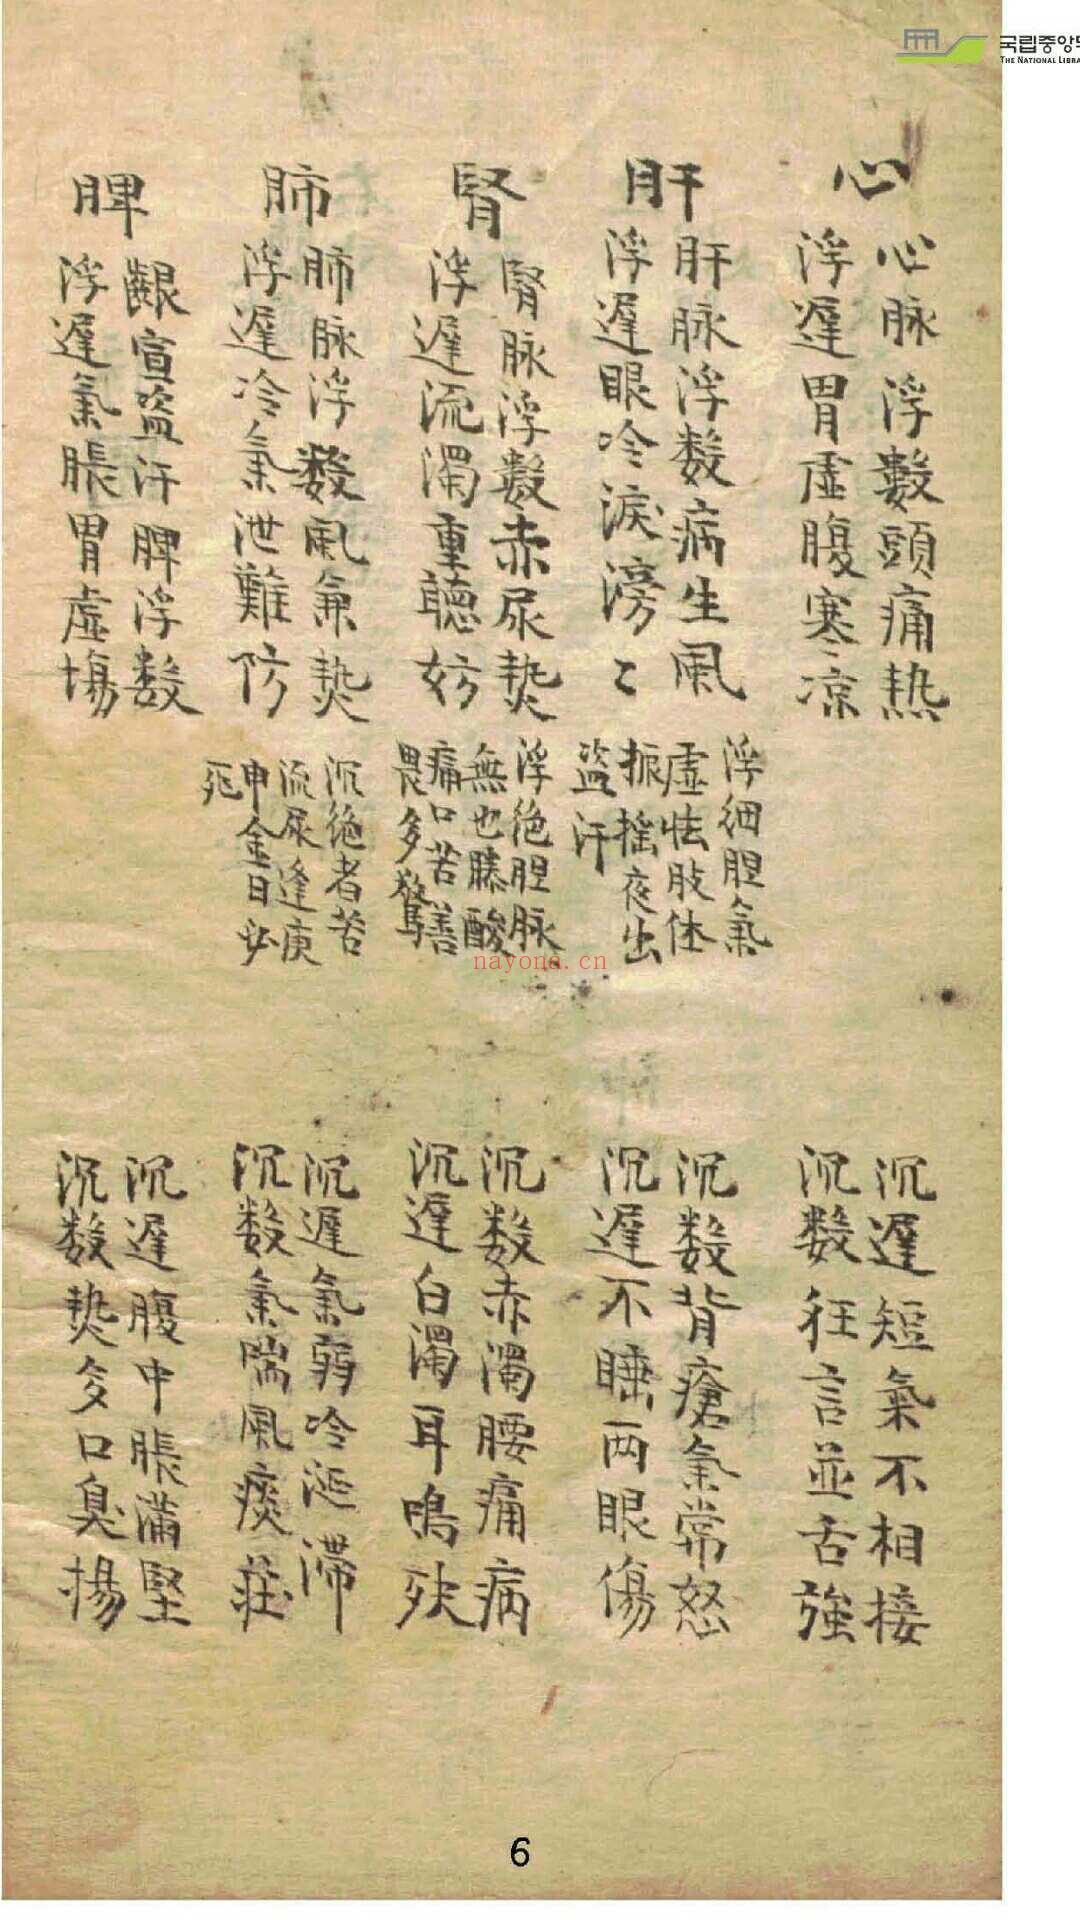 국립중앙도
THE NATIONAL LIBRA
心
心脉浮數頭痛热
浮遲胃虛腹寒凉
沉遲短氣不相接
沉数狂言並舌強
肝
肝脉浮数病生風
浮遲眼冷淚滂〻
浮细胆氣
虛怯肢体
振搖夜出
盜汗
沉数背瘡氣常怒
沉遲不睡两眼傷
腎
腎脉浮數赤尿熱
浮遲流濁重聽妨
浮絶胆脉
無也膝酸
痛口苦善
畏多驚
沉数赤濁腰痛病
沉遲白濁耳鳴殃
肺
肺脉浮数風兼熱
浮遲冷氣泄難防
沉絶者苦
流尿逢庚
申金日必
死
沉遲氣弱冷涎滯
沉数氣喘風痰
脾
齦宣盜汗脾浮数
浮遲氣脹胃虛傷
沉遲腹中脹滿堅
沉数熱多口臭揚
nayona.cn
6